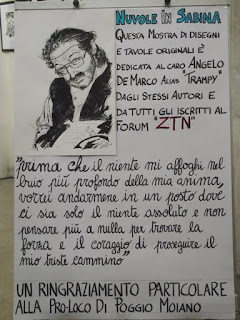 NUVOLE IN SABINA
QUESTA MOSTRA DI DISEGNI
E TAVOLE ORIGINALI È
DEDICATA AL CARO ANGELO
DE MARCO ALIAS "TRAMPY"
DAGLI STESSI AUTORI E
DA TUTTI GLI ISCRITTI AL
FORUM "ZTN"
"prima che il niente mi affoghi nel
buio più profondo della mia anima,
vorrei andarmene in un posto dove
ci sia solo il niente assoluto e non
pensare più a nulla per trovare la
forza e il coraggio di proseguire il
mio triste cammino"
UN RINGRAZIAMENTO PARTICOLARE
ALLA PRO-LOCO DI POGGIO MOIANO